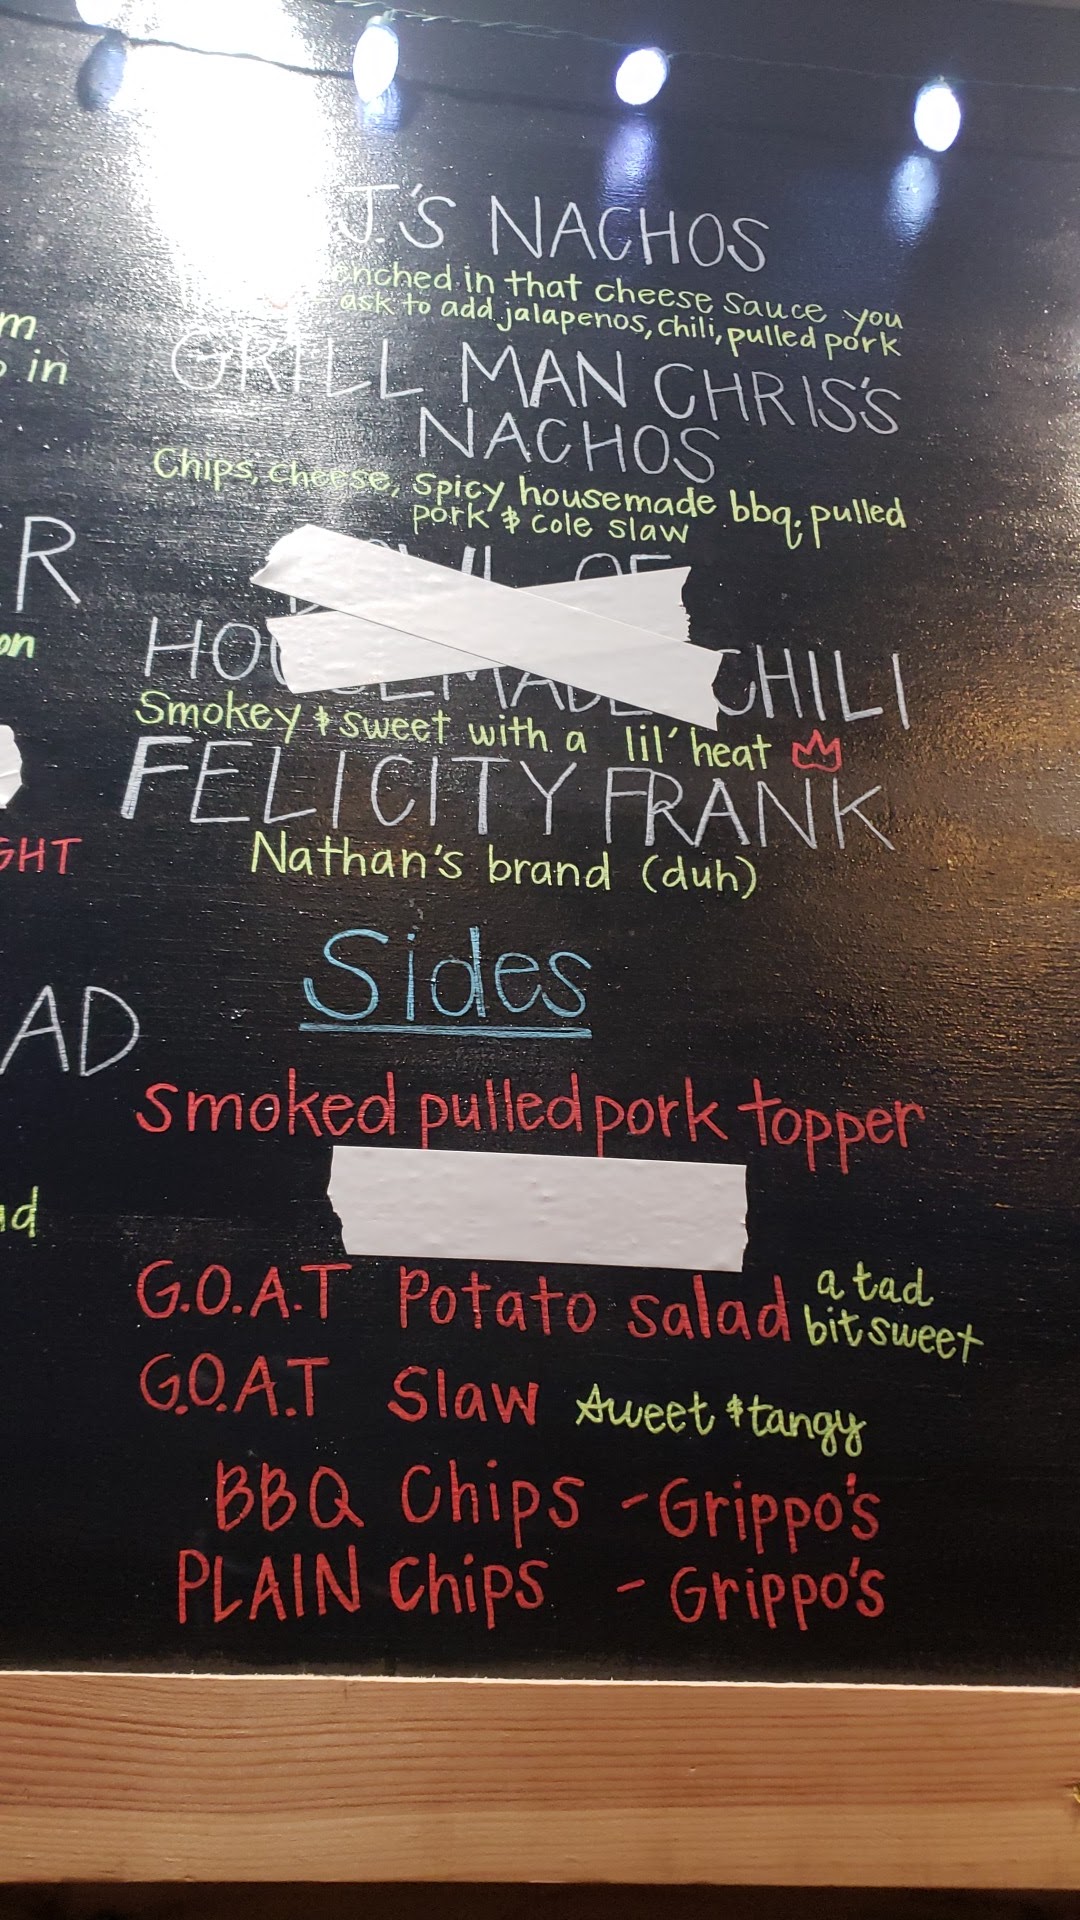 J.'S NACHOS
in that cheese sauce you
ask to add jalapenos, chili, pulled pork
GRILL MAN CHRIS'S
NACHOS
Chips, cheese, spicy housemade bbq, pulled
pork & cole slaw
OF
HOUSEMADE CHILI
Smokey & sweet with a lil' heat
FELICITY FRANK
Nathan's brand (duh)
Sides
Smoked pulled pork topper
G.O.A.T Potato salad a tad
bit sweet
G.O.A.T Slaw sweet & tangy
BBQ Chips - Grippo's
PLAIN Chips - Grippo's
in